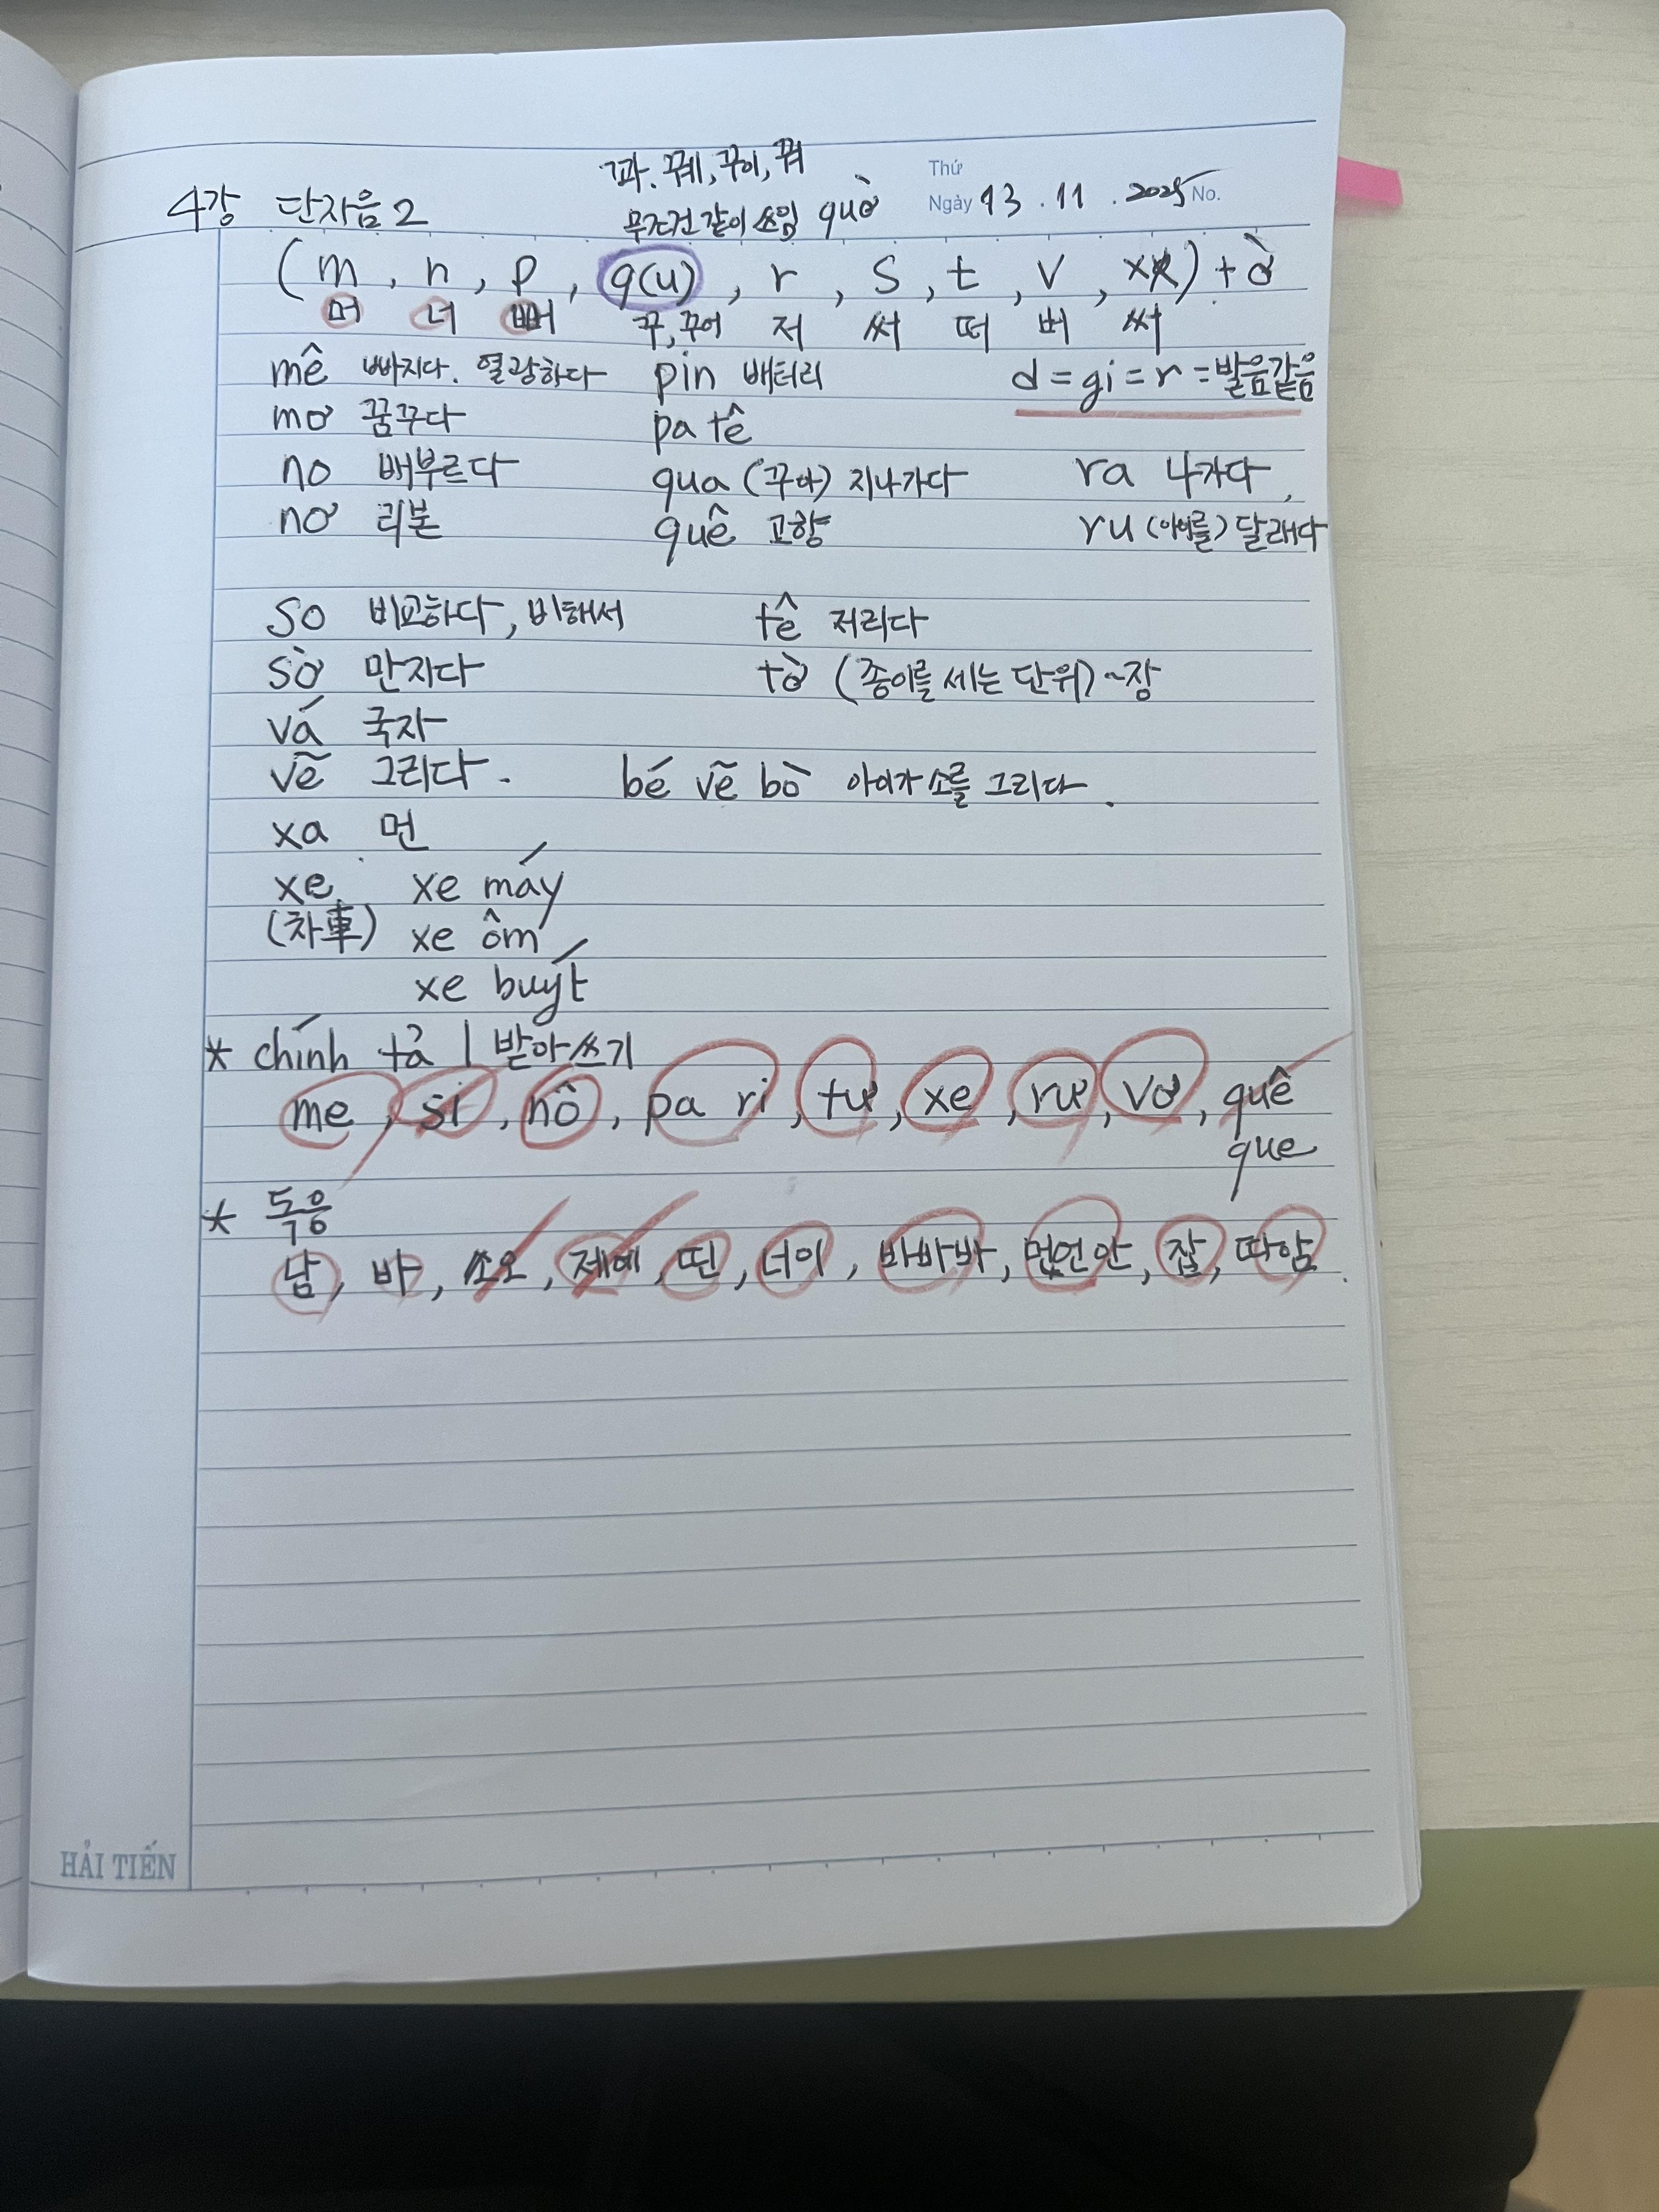 꽈. 꿰, 꾸이, 꿔
Thứ
4강 단자음2 무조건 같이 쓰임 quờ Ngày 13 . 11 . 2025 No.
(m, n, p, q(u), r, S, t, V, x) + ờ
머 너 뻐 꾸,꾸어 저 써 떠 버 써
mê 빠지다. 열광하다 pin 배터리 d = gi = r = 발음같음
mơ 꿈꾸다 pa tê
no 배부르다 qua (꾸아) 지나가다 ra 나가다,
nơ 리본 quê 고향 ru (아이를) 달래다
so 비교하다, 비해서 tê 저리다
sờ 만지다 tờ (종이를 세는 단위) ~장
vá 국자
vẽ 그리다. bé vẽ bò 아이가 소를 그리다.
xa 먼
xe, xe máy
(차車) xe ôm
xe buýt
* chính tả | 받아쓰기
me, si, nô, pa ri, tư, xe, rư, vơ, quê
que
* 독음
남, 바, 쏘오, 제예, 띤, 너이, 바바바, 멌언안, 잡, 따암.
HẢI TIẾN